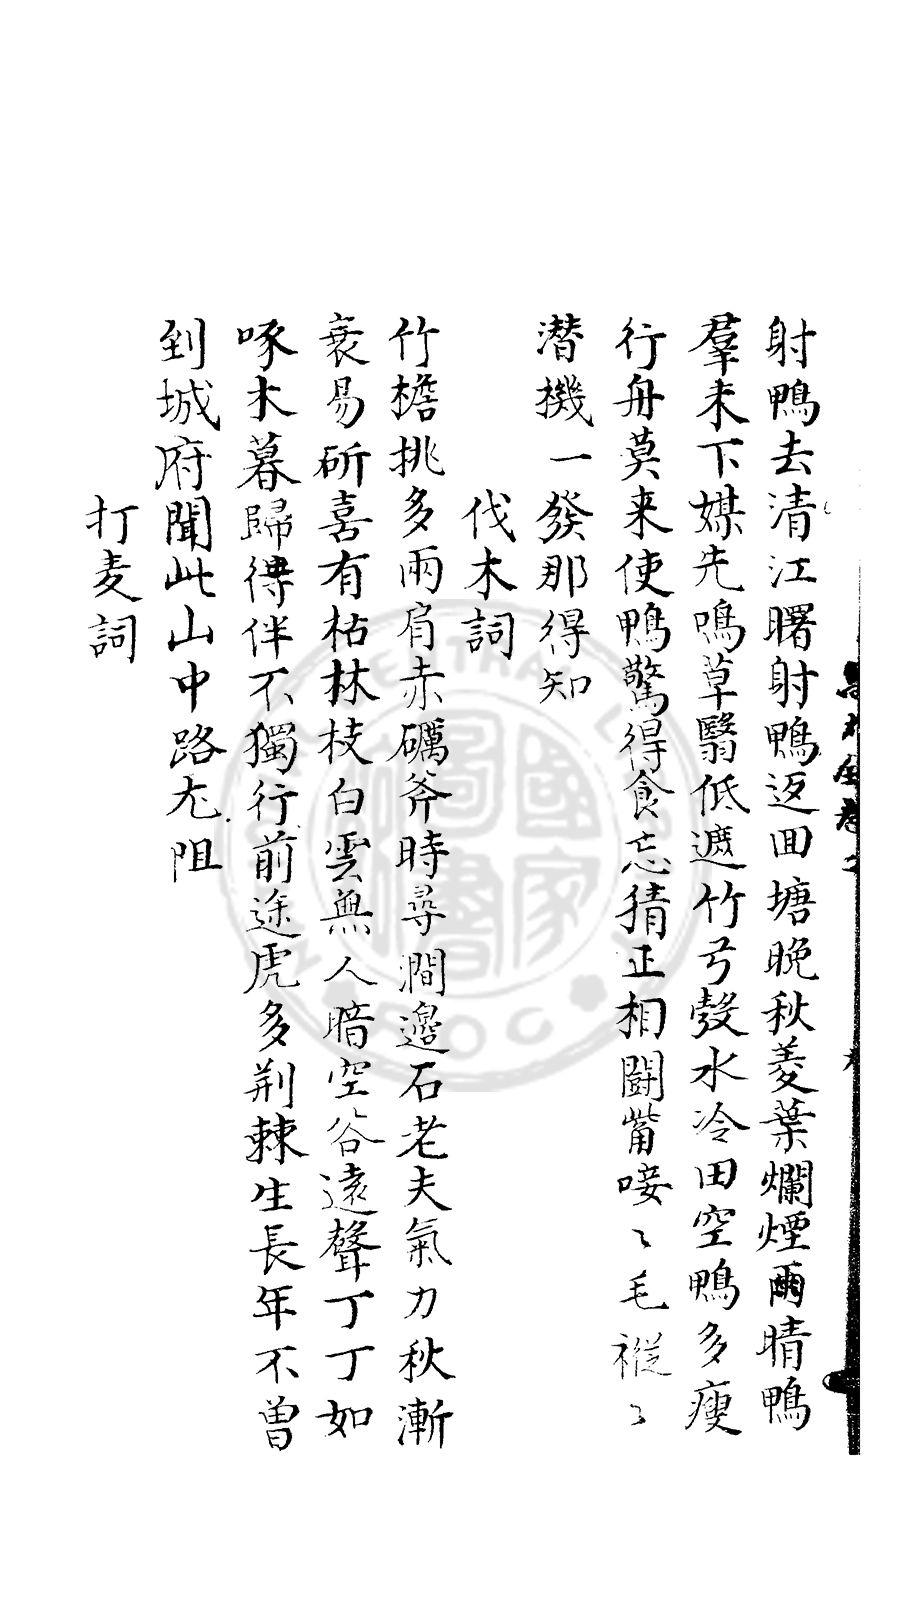 射鴨去清江曙射鴨返回塘晚秋菱葉爛煙雨晴鴨
羣未下媒先鳴草翳低遮竹弓彀水冷田空鴨多瘦
行舟莫来使鴨驚得食忘猜正相鬪觜唼〻毛褷〻
潜機一發那得知
伐木詞
竹檐挑多兩肩赤礪斧時尋澗邊石老夫氣力秋漸
衰易斫喜有枯林枝白雲無人暗空谷遠聲丁丁如
啄木暮歸得伴不獨行前途虎多荆棘生長年不曾
到城府聞此山中路尤阻
打麦詞